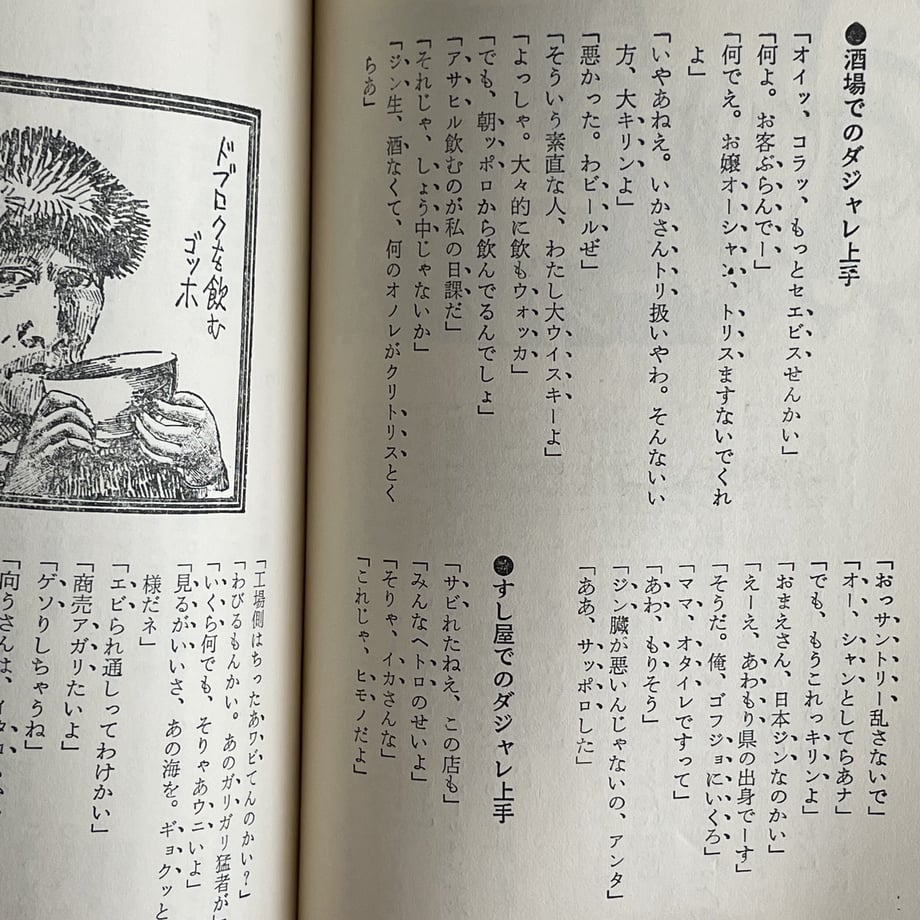 ●酒場でのダジャレ上手
「オイッ、コラッ、もっとセエビスせんかい」
「何よ。お客ぶらんでー」
「何でえ。お嬢オーシャン、トリスますないでくれ
よ」
「いやあねえ。いかさんトリ扱いやわ。そんないい
方、大キリンよ」
「悪かった。わビールぜ」
「そういう素直な人、わたし大ウイスキーよ」
「よっしゃ。大々的に飲もウォッカ」
「でも、朝ッポロから飲んでるんでしょ」
「アサヒル飲むのが私の日課だ」
「それじゃ、しょう中じゃないか」
「ジン生、酒なくて、何のオノレがクリトリスとく
らあ」
「おっサントリー乱さないで」
「オー、シャンとしてらあナ」
「でも、もうこれっキリンよ」
「おまえさん、日本ジンなのかい」
「えーえ、あわもり県の出身でーす」
「そうだ。俺、ゴフジョにいくろ」
「ママ、オタイレですって」
「あわ、もりそう」
「ジン臓が悪いんじゃないの、アンタ」
「ああ、サッポロした」
●すし屋でのダジャレ上手
「サビれたねえ、この店も」
「みんなヘトロのせいよ」
「そりゃ、イカさんな」
「これじゃ、ヒモノだよ」
ドブロクを飲む
ゴッホ
「工場側はちったあワビてんのかい?」
「わびるもんかい。あのガリガリ猛者が」
「いくら何でも、そりゃあウニいよ」
「見るがいいさ、あの海を。ギョクッと
様だネ」
「エビられ通しってわけかい」
「商売アガリたいよ」
「ゲソりしちゃうね」
「向うさんは、イタ